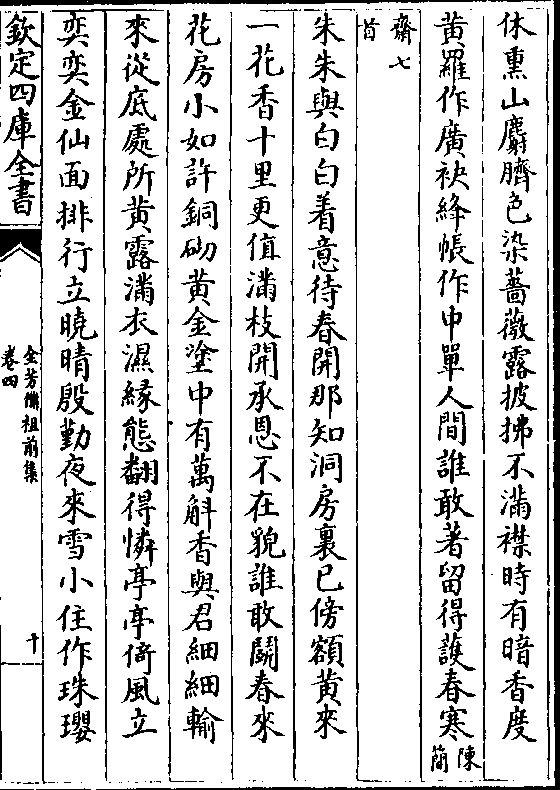 休熏山麝臍色染薔薇露披拂不滿襟時有暗香度
黄羅作廣袂絳帳作中單人間誰敢著留得護春寒陳簡
齋七首
朱朱與白白着意待春開那知洞房裏已傍額黄來
一花香十里更值滿枝開承恩不在貌誰敢鬬春來
花房小如許銅砌黄金塗中有萬斛香與君細細輸
來從底處所黄露滿衣濕緣態翻得憐亭亭倚風立
奕奕金仙面排行立曉晴殷勤夜來雪小住作珠瓔
欽定四庫全書
全芳備祖前集
卷四
十